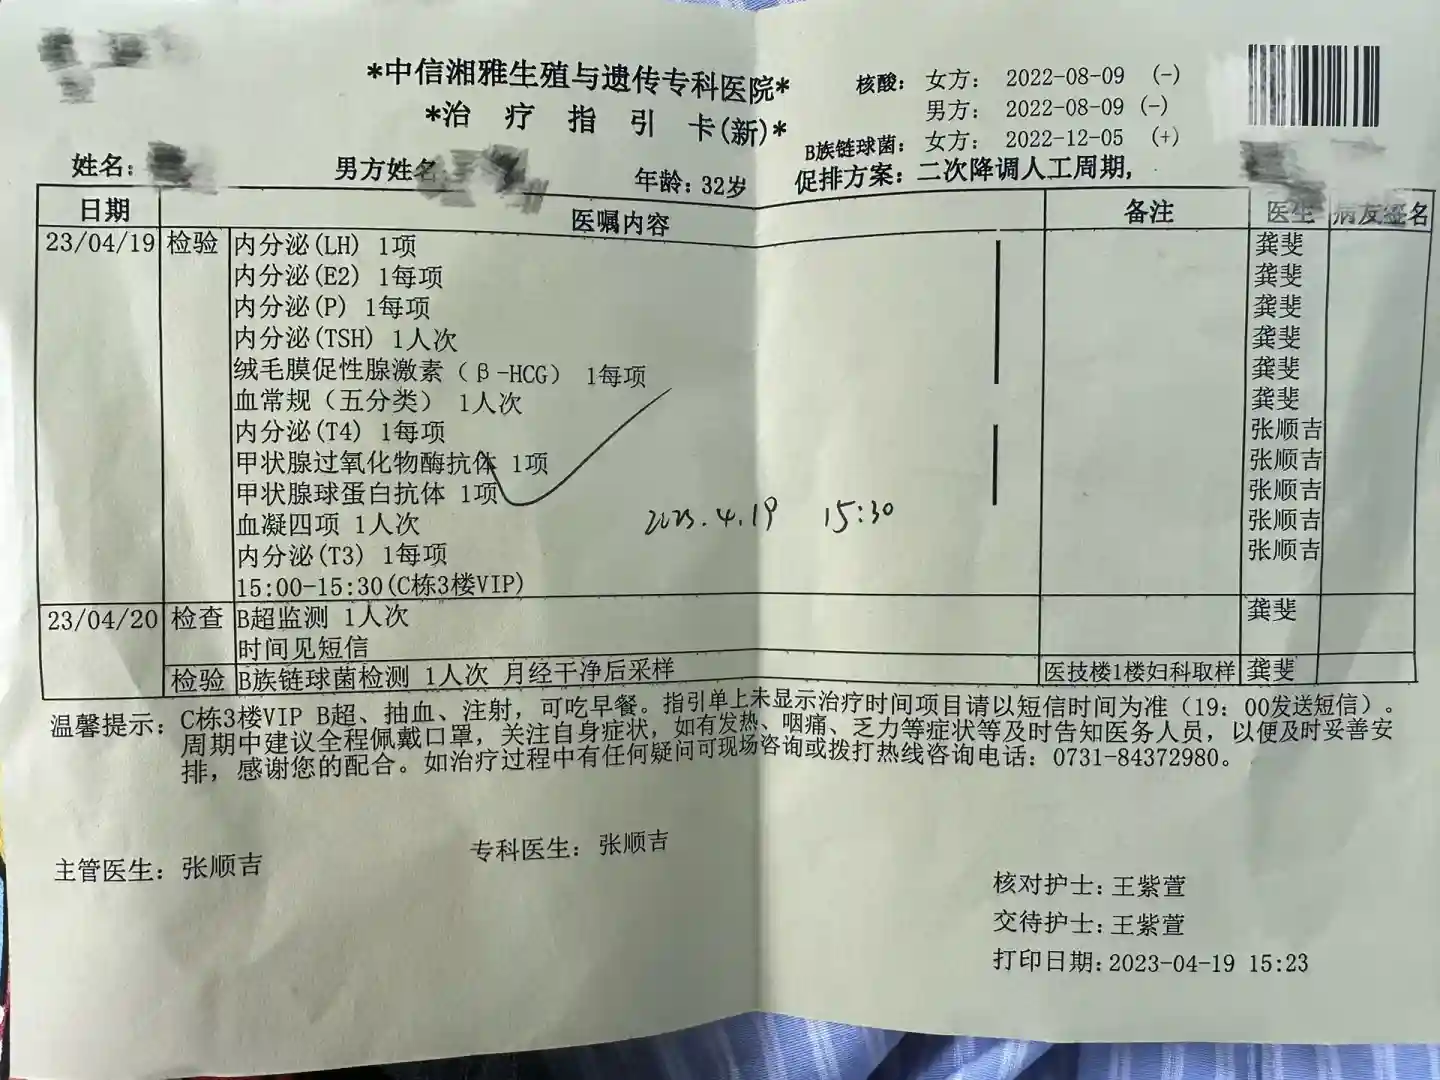 *中信湘雅生殖与遗传专科医院*
*治 疗 指 引 卡(新)*
核酸： 女方： 2022-08-09 (-)
男方： 2022-08-09 (-)
B族链球菌： 女方： 2022-12-05 (+)
姓名： 男方姓名 年龄：32岁 促排方案：二次降调人工周期,
日期 医嘱内容 备注 医生 病友签名
23/04/19 检验 内分泌(LH) 1项 龚斐
内分泌(E2) 1每项 龚斐
内分泌(P) 1每项 龚斐
内分泌(TSH) 1人次 龚斐
绒毛膜促性腺激素（β-HCG） 1每项 龚斐
血常规（五分类） 1人次 龚斐
内分泌(T4) 1每项 张顺吉
甲状腺过氧化物酶抗体 1项 张顺吉
甲状腺球蛋白抗体 1项 张顺吉
血凝四项 1人次 2023.4.19 15:30 张顺吉
内分泌(T3) 1每项 张顺吉
15:00-15:30(C栋3楼VIP)
23/04/20 检查 B超监测 1人次 龚斐
时间见短信
检验 B族链球菌检测 1人次 月经干净后采样 医技楼1楼妇科取样 龚斐
温馨提示： C栋3楼VIP B超、抽血、注射，可吃早餐。指引单上未显示治疗时间项目请以短信时间为准（19：00发送短信）。
周期中建议全程佩戴口罩，关注自身症状，如有发热、咽痛、乏力等症状等及时告知医务人员，以便及时妥善安
排，感谢您的配合。如治疗过程中有任何疑问可现场咨询或拨打热线咨询电话：0731-84372980。
主管医生：张顺吉 专科医生：张顺吉
核对护士：王紫萱
交待护士：王紫萱
打印日期：2023-04-19 15:23